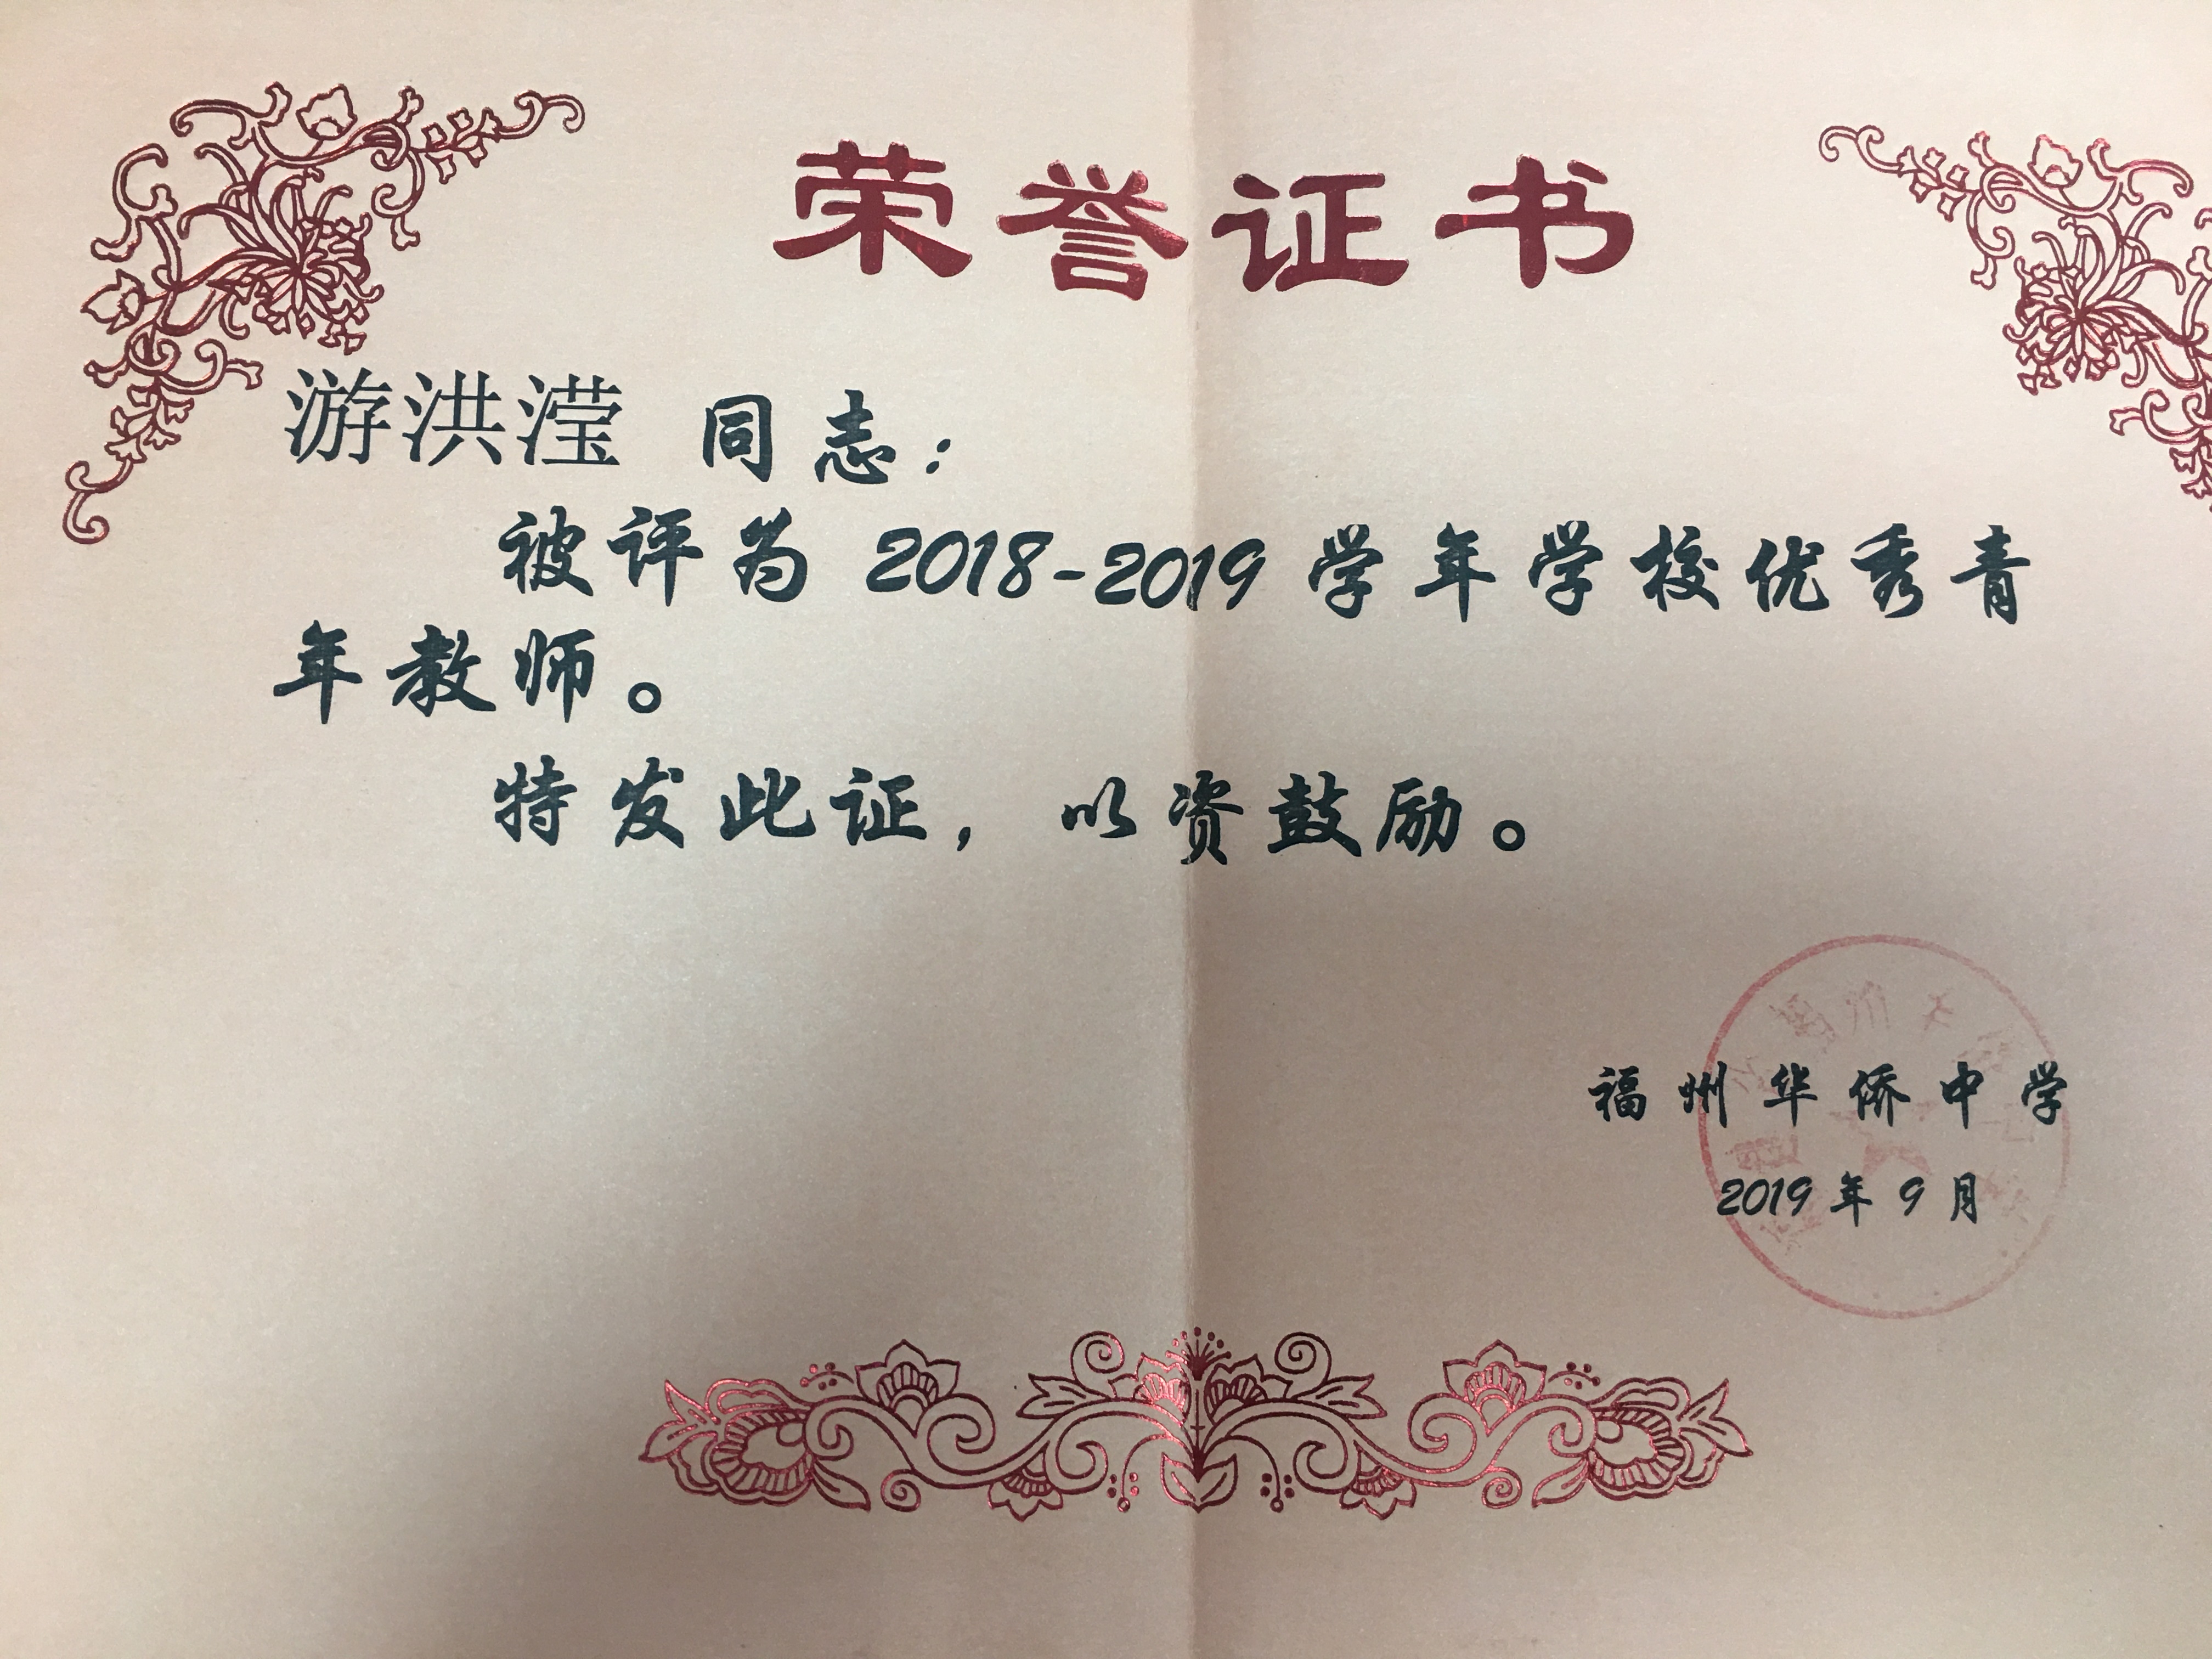 荣誉证书
游洪滢 同志：
被评为 2018-2019 学年学校优秀青
年教师。
特发此证，以资鼓励。
福州华侨中学
2019 年 9 月